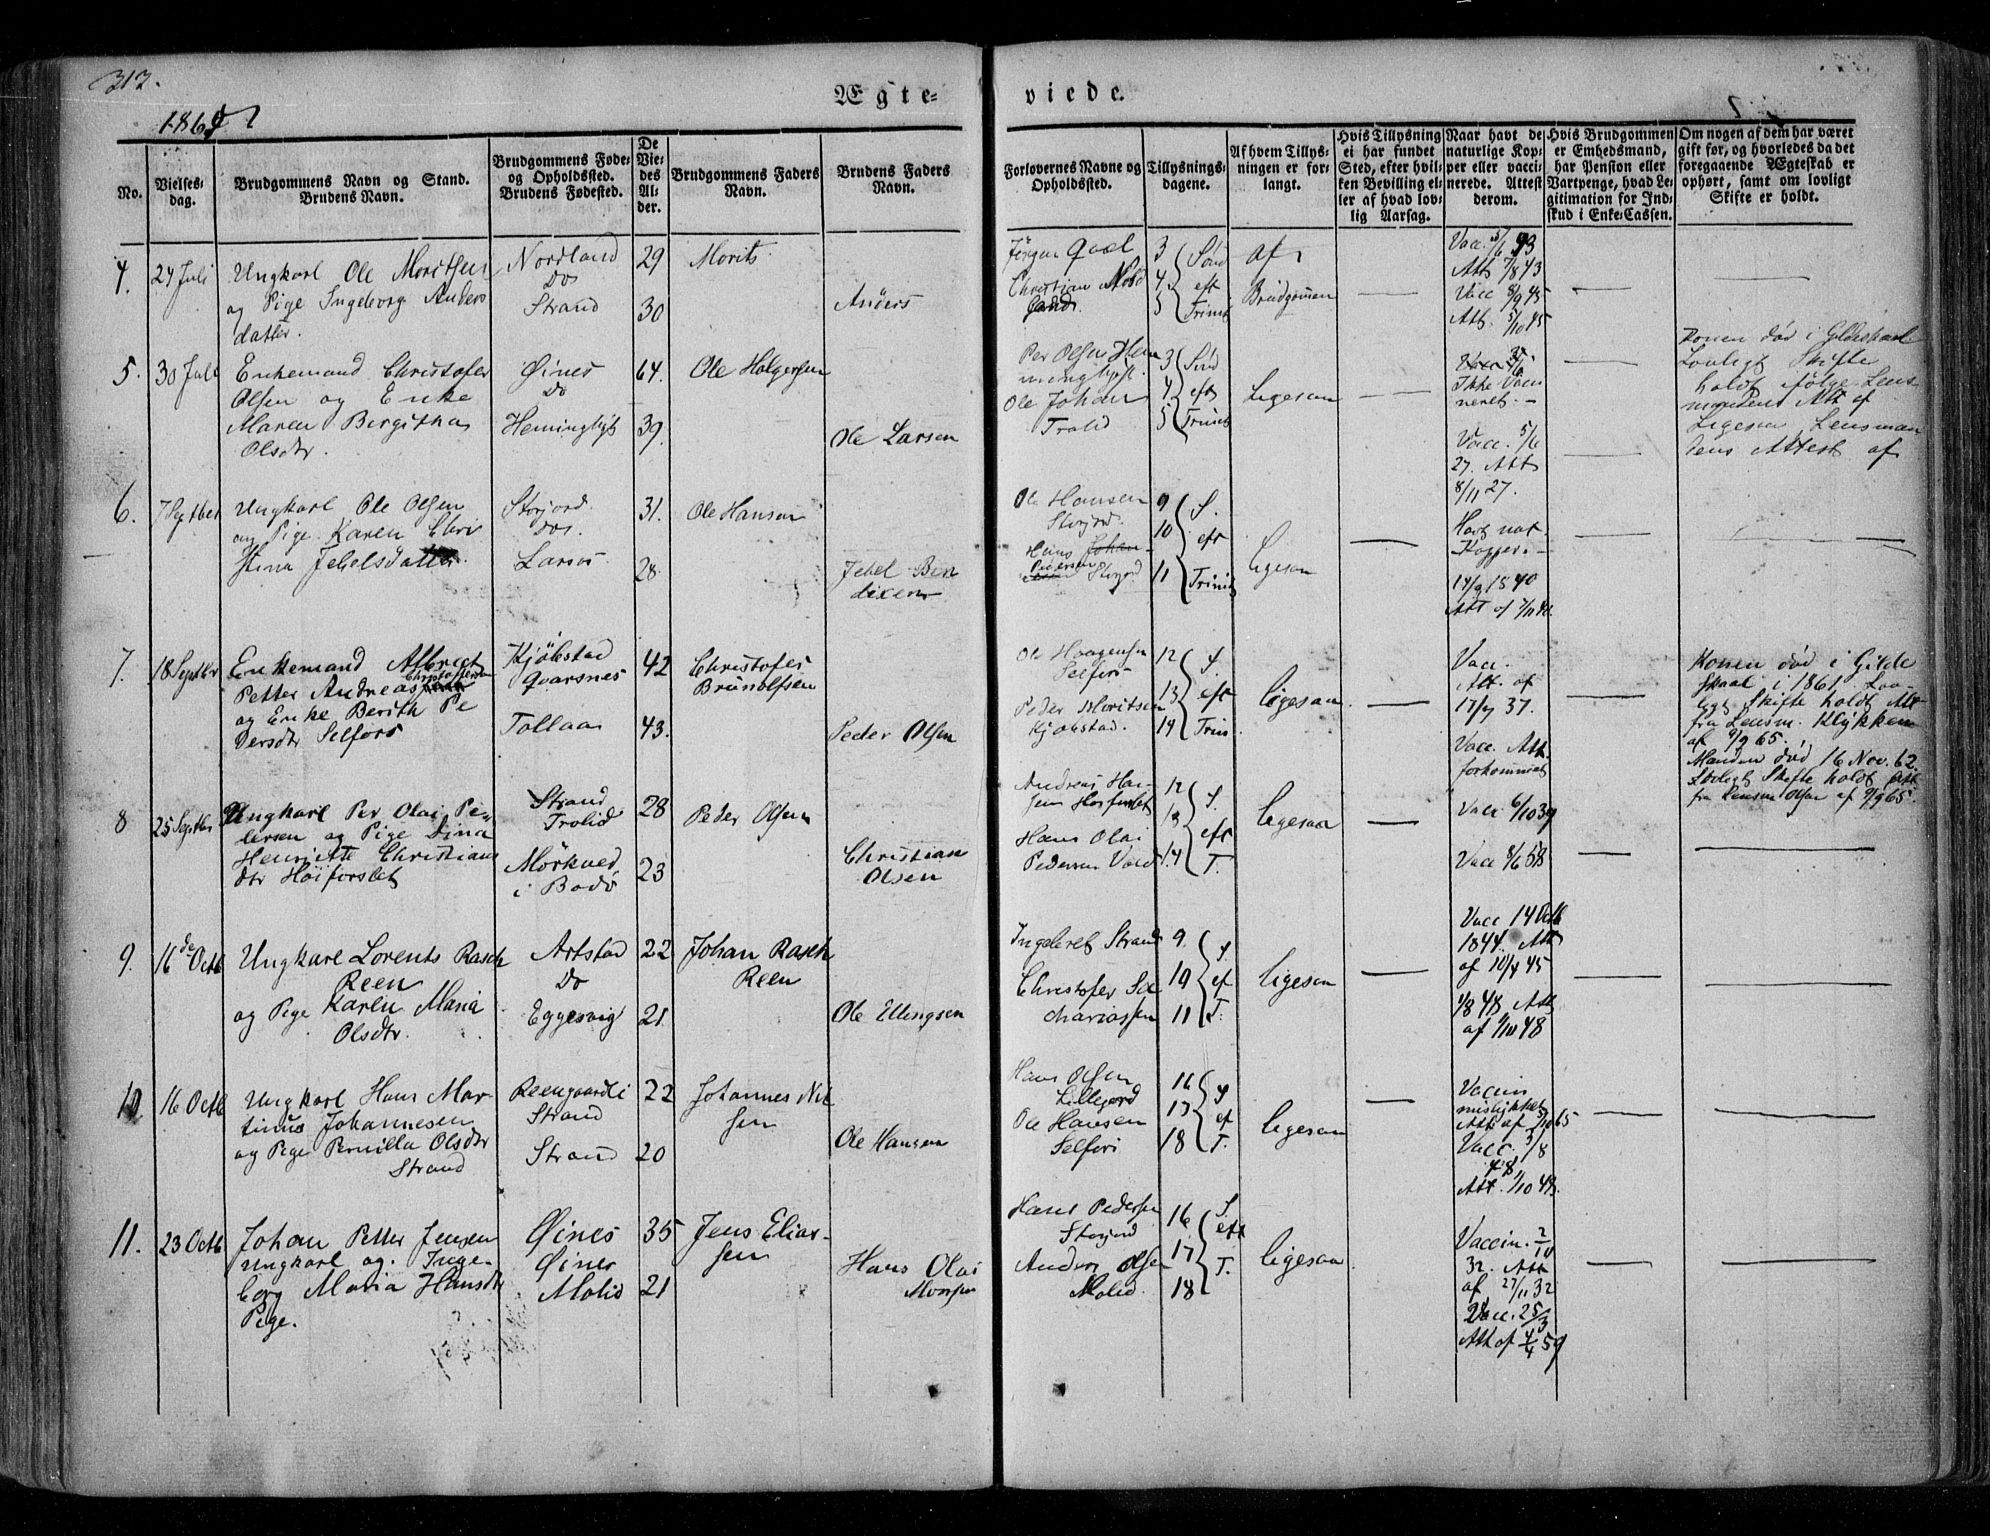 312.
Ægte-
viede.
186
No.
Vielses-
dag.
Brudgommens Navn og Stand.
Brudens Navn.
Brudgommens Føde-
og Opholdssted.
Brudens Fødested.
De
Vie-
des
Al-
der.
Brudgommens Faders
Navn.
Brudens Faders
Navn.
Forlovernes Navne og
Opholdssted.
Tillysnings-
dagene.
Af hvem Tillys-
ningen er for-
langt.
Hvis Tillysning
ei har fundet
Sted, efter hvil-
ken Bevilling el-
ler af hvad lov-
lig Aarsag.
Naar havt de
naturlige Kop-
per eller vacci-
nerede. Attest
derom.
Hvis Brudgommen
er Embedsmand,
har Pension eller
Vartpenge, hvad Le-
gitimation for Ind-
skud i Enke-Cassen.
Om nogen af dem har været
gift før, og hvorledes da det
foregaaende Ægteskab er
ophørt, samt om lovligt
Skifte er holdt.
4.
24 Juli
Ungkarl Ole Moritsen
og Pige Ingeborg Anders
datter.
Nordland
Do
Strand
29
30
Morits
Anders
Jörgen Qval
Christian Nord
land
3
4
5
Sönd
eft
Trinit
af
Brudgommen
Vacc. 5/6 43
Att 7/8 43
Vacc 8/9 45
Att. 5/10 45
5.
30 Juli
Enkemand Christofer
Olsen og Enke
Maren Bergitha
Olsdtr.
Øines
Do
Hemingbyt
64.
39.
Ole Holgersen
Ole Larsen
Per Olsen Hem
mingbyt.
Ole Johan
Trolid
3
4.
5
Sönd
eft
Trinit
Ligesaa
Ikke Vacci
neret.
Vacc. 5/6
27. Att
8/11 27.
Konen död i Gildeskaal
Lovligt Skifte
holdt ifölge Lens
mandens Att af
Ligesaa Lensman
dens Attest af
6.
7 Septber
Ungkarl Ole Olsen
og Pige Karen Chri
stina Jebelsdatter.
Storjord.
Do.
Larsos
31.
28.
Ole Hansen
Jebel Ben
dixen
Ole Hansen
Storjord.
Hans Johan
Pedersen
Storjord
9
10
11
S.
eft
Trinit
Ligesaa
Havt nat
Kopper.
17/9 1840
Att af 7/11 40.
7.
18 Septber
Enkemand Albrict
Petter Andreas Christoffersen
og Enke Berith Pe
dersdtr Selfors
Kjöbstad
Qvarsnes
Tollaas
42
43.
Christofer
Brunolfsen
Peder Olsen
Ole Haagensen
Selfors
Peder Moritsen
Kjöbstad.
12
13
14
S.
eft
Trin
Ligesaa
Vacc.
Att. af
17/7 37.
Vacc. Att.
forkommet
Konen död i Gilde
skaal i 1861 Lov-
ligt Skifte holdt Att
fra Lensm. Klykken
af 9/9 65.
Manden död 16 Nov. 62.
Lovligt Skifte holdt Att
fra Lensm Olsen af 9/9 65.
8
25 Septber
Ungkarl Per Olai Pe-
dersen og Pige Dina
Henriette Christians
dtr Höiforslet
Strand
Trolid
Mörkved
i Bodö
28
23
Peder Olsen
Christian
Olsen
Andreas Han-
sen Höiforslet
Hans Olai
Pedersen
12
13
14
S.
eft
T.
Ligesaa
Vacc 6/10 39
9.
16de Octb
Ungkarl Lorents Rasch
Reen
og Pige Karen Maria
Olsdtr.
Artstad
Do
Eggesvig
22
21
Johan Rasch
Reen
Ole Ellingsen
Ingebret Strand
Christofer Sa
chariassen
9.
10
11
S
ef
T.
Ligesaa
Vacc 14 Octb
1844. Att
af 10/4 45
1/8 48 Att
af 1/10 48
10
16 Octb
Ungkarl Hans Mar-
tinus Johannesen
og Pige Pernilla Olsdtr
Strand
Reengaardli
Strand
Strand
22
20
Johannes Nil
sen
Ole Hansen
Hans Olsen
Lillejord
Ole Hansen
Selfors
16
17
18
S
ef
T.
Ligesaa
Vaccin
mislykket
Att. af 5/10 65
Vacc. 3/8
48,
Att. 1/10 48.
11.
23 Octb
Johan Petter Jensen
Ungkarl og. Inge-
borg Maria Hansdtr
Pige.
Øines
Øines
Molid
35
21
Jens Elias-
sen
Hans Olai
Monsen
Hans Pedersen
Storjord
Anders Olsen
Molid.
16
17
18
S.
eft
T.
Ligesaa
Vaccin. 2/10
32. Att
af 27/11 32
Vacc. 25/3
Att af 4/4 59